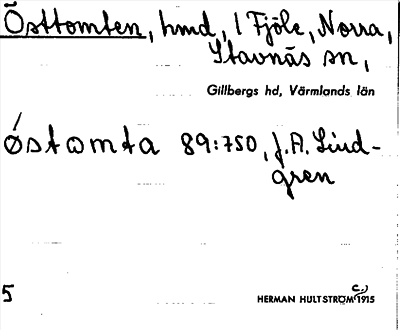 Östtomten, hmd, 1 Fjöle, Norra,
Stavnäs sn,
Gillbergs hd, Värmlands län
östomta 89:750, J.A. Lind-
gren
5
HERMAN HULTSTRÖM (c.) 1915